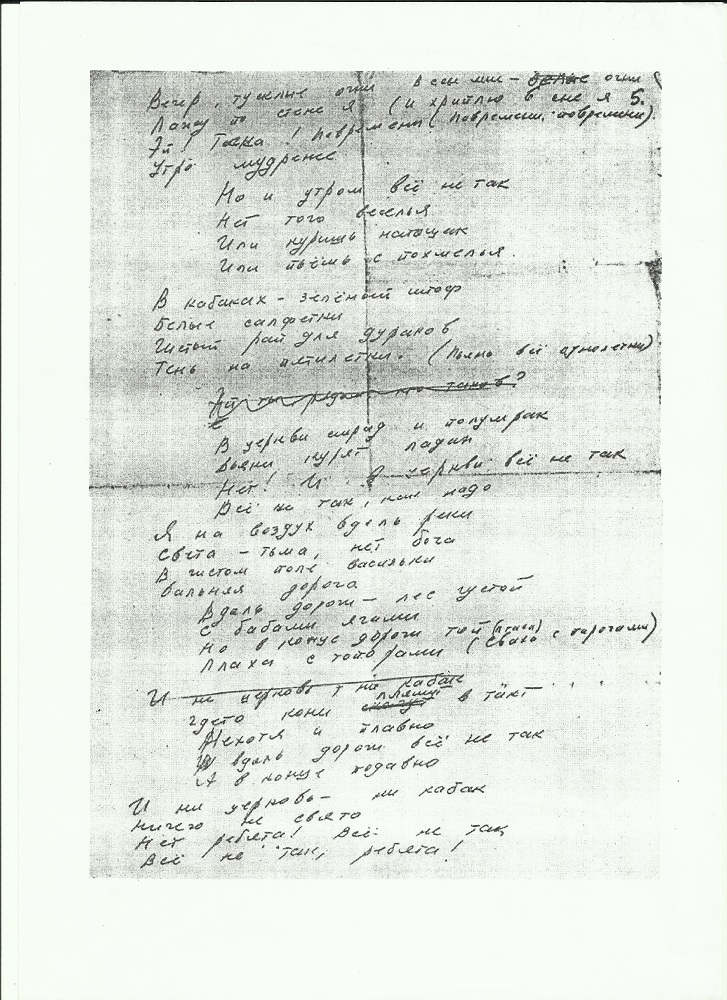 Вечер, тусклые огни   в сон мне – белые огни
Лажу по стене я   (и хриплю в сне я   5.
Эй! Тоска! Повремени (Повремени, повремени).
Утро мудрене
Но и утром всё не так
Нет того веселья
Или куришь натощак
Или пьёшь с похмелья.
В кабаках – зелёный штоф
Белые салфетки
Чистый рай для дураков
Тень на пятилетки. (Пьяно всё
В церкви смрад и полумрак
Дьяки курят ладан
Нет! И в церкви всё не так
Всё не так, как надо
Я на воздух вдоль реки
Света – тьма, нет бога
В чистом поле васильки
Дальняя дорога
Вдоль дороги – лес густой
с бабами ягами
Но в конце дороги той (Сваха с пирогами)
Плаха с топорами
И не церковь и не кабак
гдето кони пляшут в такт
Нехотя и плавно
И вдоль дороги всё не так
А в конце подавно
И ни церковь – ни кабак
Ничего не свято
Нет ребята! Всё не так,
Всё не так, ребята!